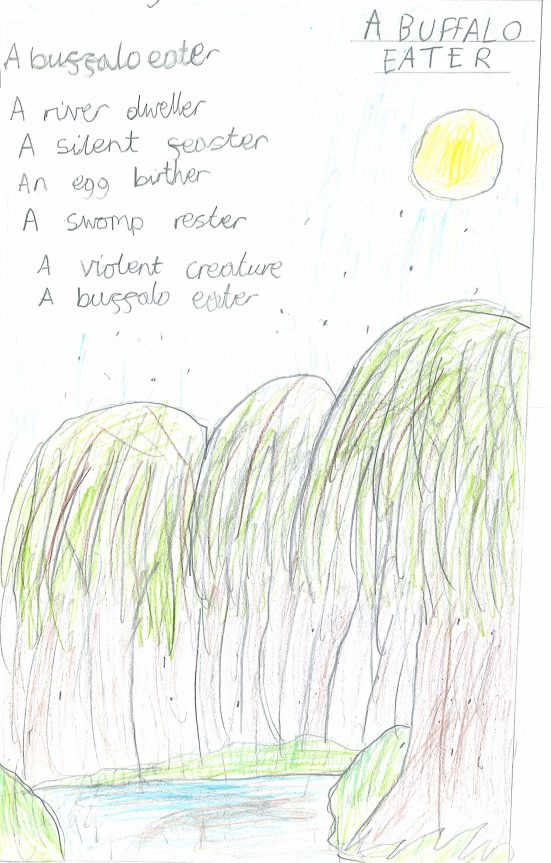 A BUFFALO
EATER
A buffalo eater
A river dweller
A silent feaster
An egg birther
A swamp rester
A violent creature
A buffalo eater